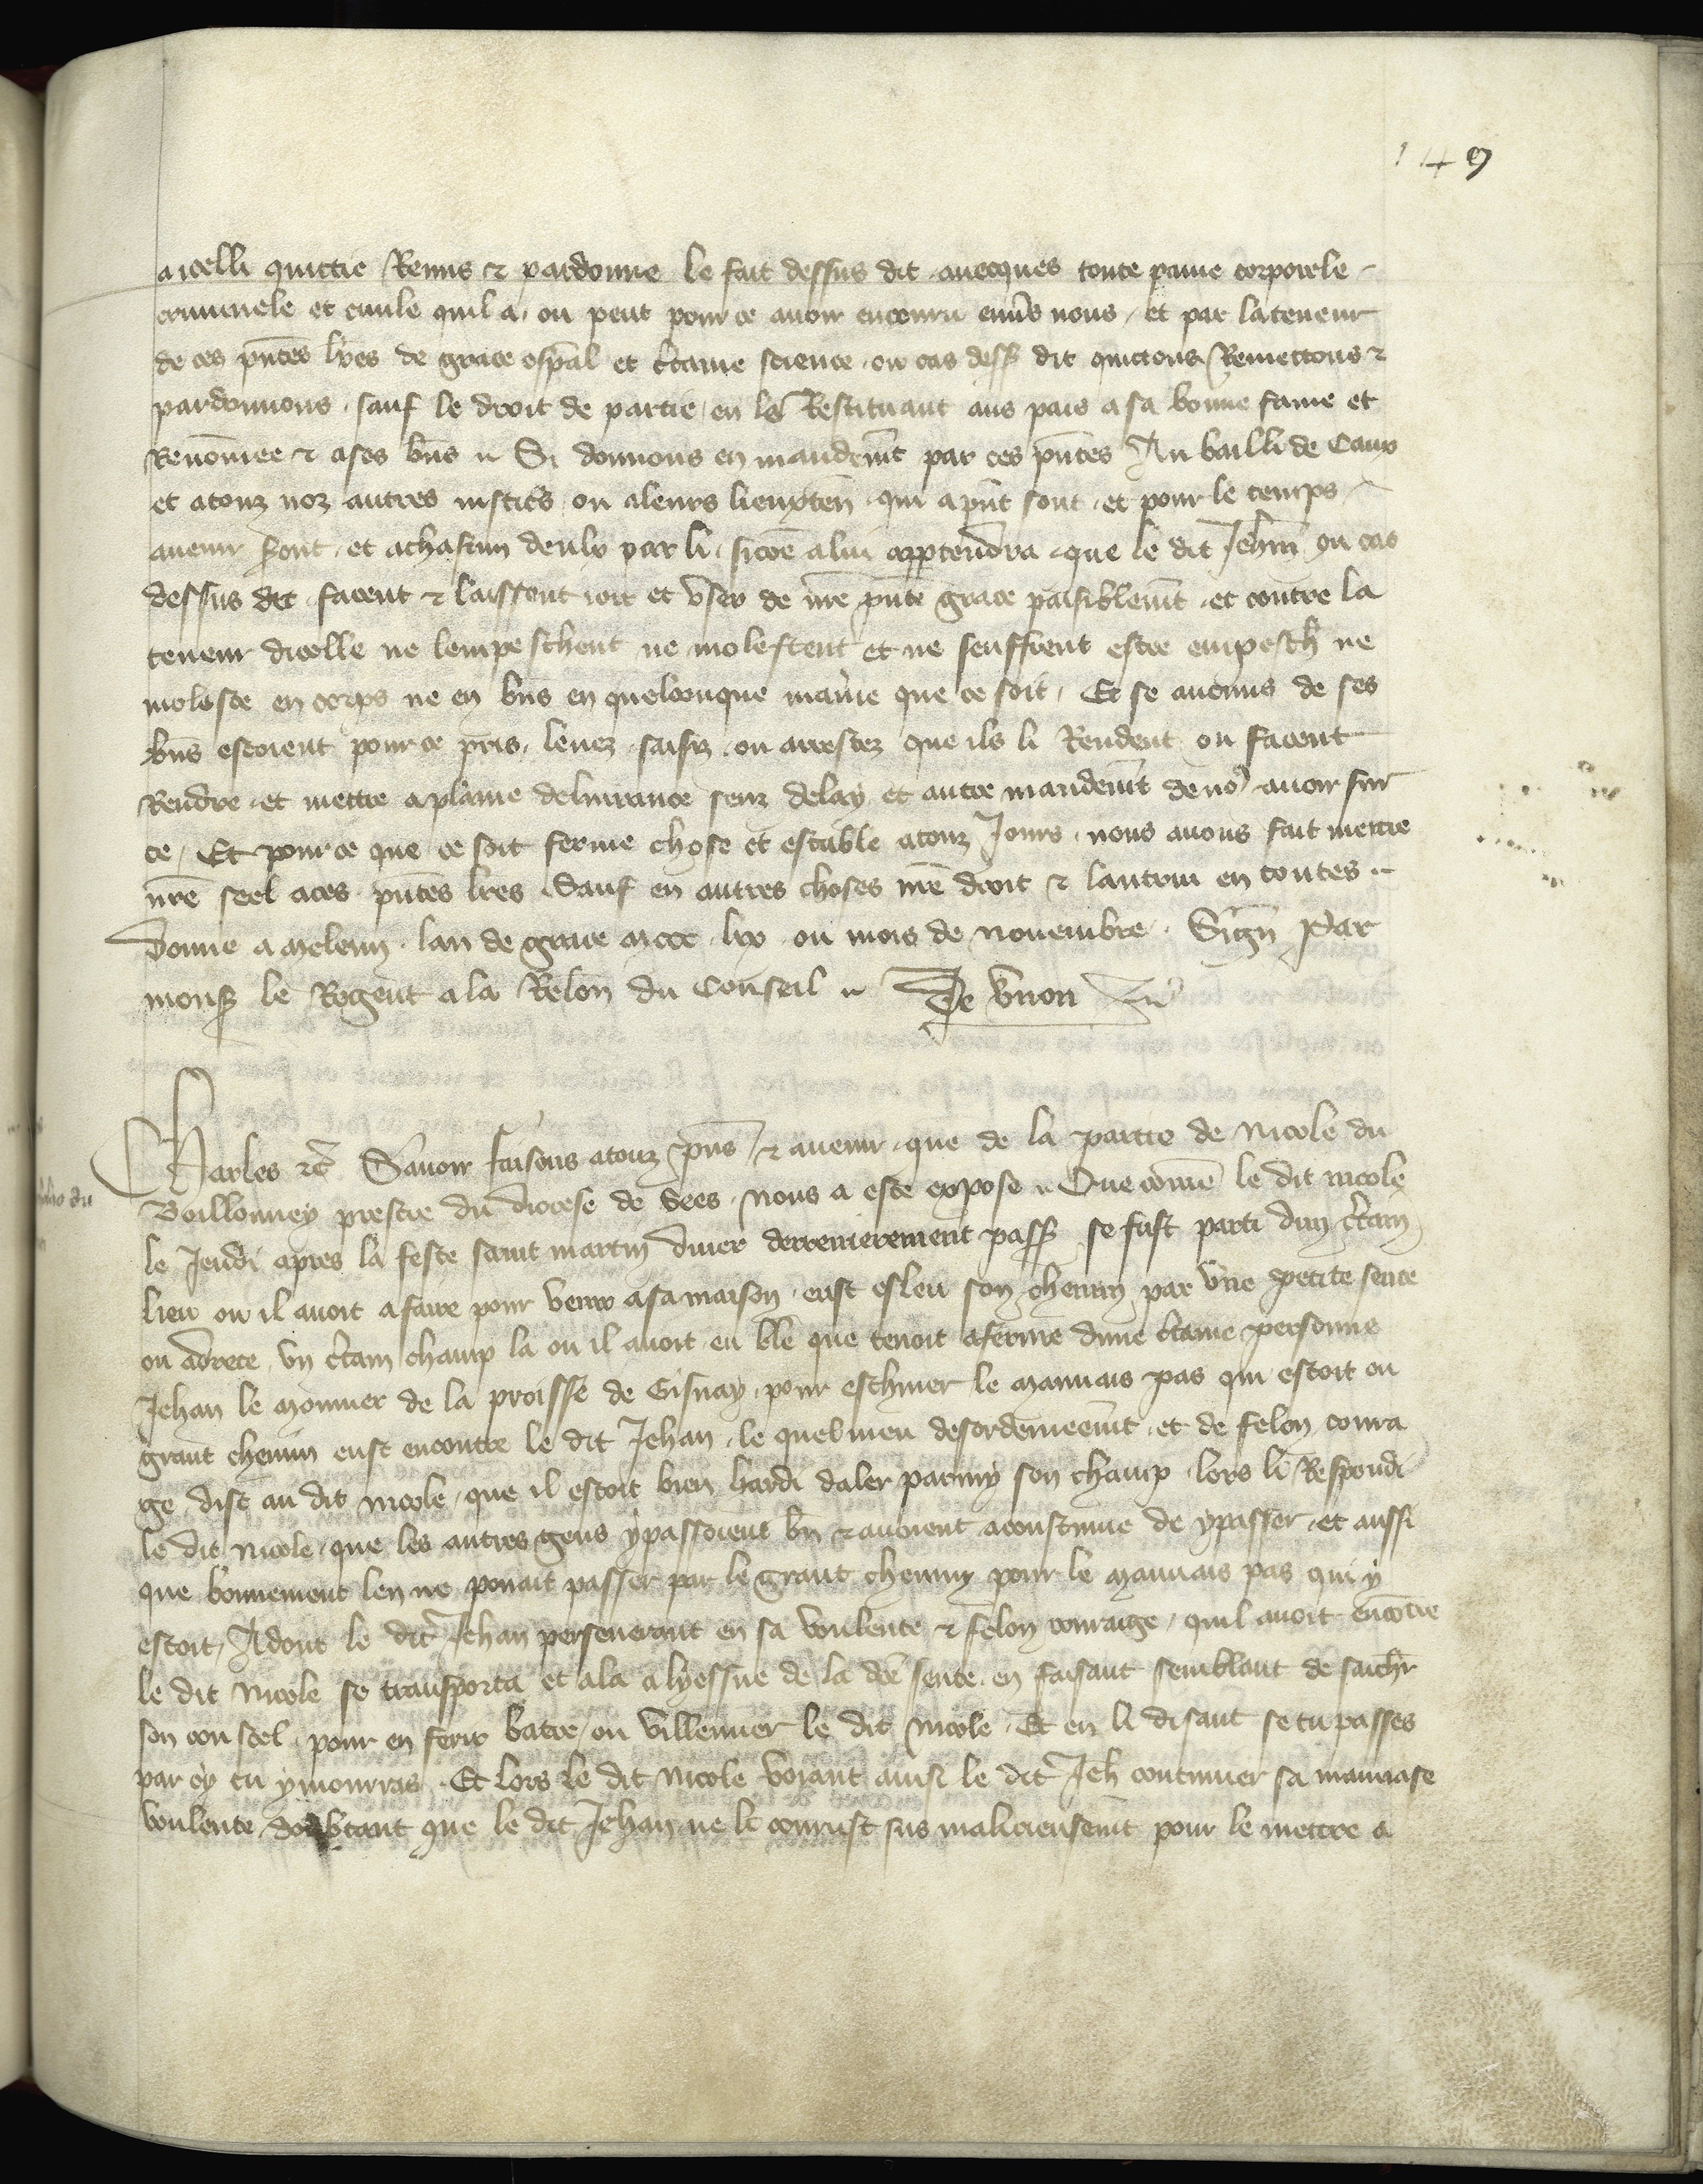 149
a icelli quittie Remis et pardonne le fait dessus dit avecques toute paine corporele
criminele et civile quil a ou peut pour ce avoir encouru env̄s nous et par la teneur
de ces pn̄tes lr̄es de grace esp̄al et c̄taine science ou cas dess dit quictons Remettons et
pardonnons sauf le droit de partie en le Restituant aus pais a sa bonne fame et
Renōmee et a ses bn̄s Si donnons en mandem̄t par ces pn̄tes Au bailli de Caux
et a touz noz autres justic̄s ou a leurs lieuxten̄ qui a pn̄t sont et pour le temps
avenir s̄ont et a chascun deulx par li sicōe a lui app̄tendra que le dit Jeh̄in ou cas
dessus dit facent et laissent joir et user de nr̄e pn̄te grace paisiblem̄t et contre la
teneur dicelle ne lempeschent ne molestent et ne seuffrent estre empesch̄ ne
moleste en corps ne en bn̄s en quelconque man̄ie que ce soit Et se aucuns de ses
bn̄s estoient pour ce pris levez saisiz ou arrestez que ils li Rendent ou facent
Rendre et mettre a plaine delivrance senz delay et autre mandem̄t de no9 avoir sur
ce Et pour ce que ce soit ferme chose et estable a touz Jours nous avons fait mettre
nr̄e seel a ces pn̄tes lr̄es Sauf en autres choses nr̄e droit et lautrui en toutes
Donne a meleun lan de grace mccc lix ou mois de novembre Sign̄ Par
mons̄ le Regent a la Relon̄ du Conseil
Charles etc̄ Savoir faisons a touz pn̄s et avenir que de la partie de Nicole du
Boillonney prestre du diocese de Sees nous a este expose Que cōme le dit nicole
le Jeudi apres la feste saint martin diver derrenierement pass̄ se fust parti dun c̄tain
lieu ou il avoit a faire pour venir a sa maison eust esleu son chemin par une petite sente
ou adrece un c̄tain champ la ou il avoit eu ble que tenoit a ferme dune c̄taine personne
Jehan le monnier de la proisse de Gisnay pour eschiver le mauvais pas qui estoit ou
grant chemin eust encontre le dit Jehan le quel meu desordeneem̄t et de felon coura
ge dist au dit nicole que il estoit bien hardi daler parmy son champ lors li Respondi
le dit nicole que les autres gens y passoient bn̄ et avoient acoustume de y passer et aussi
que bonnement len ne povait passer par le grant chemin pour le mauvais pas qui y
estoit Adont le dit Jehan perseverant en sa voulente et felon couraige quil avoit encōtre
le dit Nicole se transporta et ala a lyessue de la dc̄e sente en faisant semblant de saichr̄
son coustel pour en ferir batre ou villenner le dit Nicole Et en li disant se tu passes
par cy tu y mourras Et lors le dit Nicole voiant ainsi le dit Jeh̄ continuer sa mauvaise
voulente doubtant que le dit Jehan ne li courust sus malicieusem̄t pour le mettre a